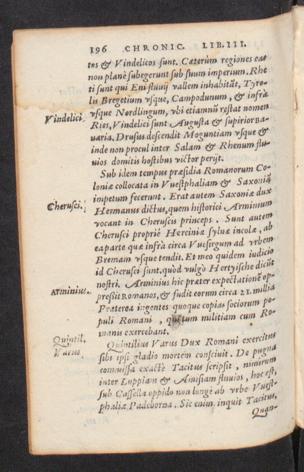 196 CHRONIC. LIB. III.
tus & Vindelicos sunt. Cæterùm regiones eas
non planè subegerunt sub suum imperium. Rhe
ti sunt qui Eni fluuij vallem inhabitāt, Tyro-
lis Bregetium vsque, Campodunum, & infrà
Vindelici.
vsque Nordlingum, vbi etiamnū restat nomen
Ries, Vindelici sunt Augusta & superior Ba-
uaria. Drusus descendit Moguntiam vsque &
inde non procul inter Salam & Rhenum flu-
uios domitis hostibus victor perijt.
Sub idem tempus præsidia Romanorum Co-
lonia collocata in Vuestphaliam & Saxoniā
impetum fecerunt. Erat autem Saxoniæ dux
Cherusci.
Hermanus dictus, quem historici Arminium
vocant in Cheruscis princeps. Sunt autem
Cherusci propriè Hercinia sylua incolæ, ab
ea parte quæ infrà circa Vuesergum ad vrbem
Bremam vsque tendit. Et meo quidem iudicio
id Cherusci sunt, quòd vulgò Hertzische dicūt
Arminius.
nostri. Arminius hic præter expectationē op-
pressit Romanos, & fudit eorum circa 21. millia
Præterea ingentes quoque copias sociorum po-
puli Romani, quotum militiam cum Ro-
manis exercebant.
Quintil.
Varus
Quintilius Varus Dux Romani exercitus
sibi ipsi gladio mortem consciuit. De pugna
commissa exactè Tacitus scripsit, nimirum
inter Luppiam & Amisiam fluuios, hoc est,
sub Cassella oppido non longè ab vrbe Vuest-
phaliæ Padeborna. Sic enim inquit Tacitus,
Quan-